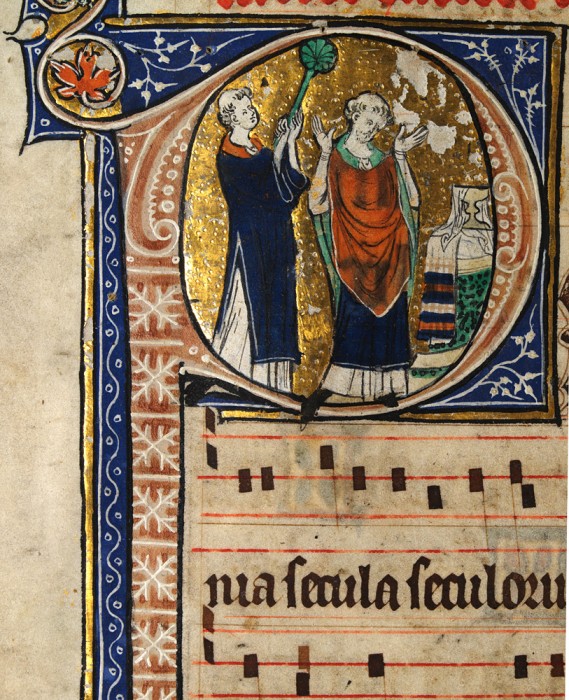 P
nia ſecula ſeculoru